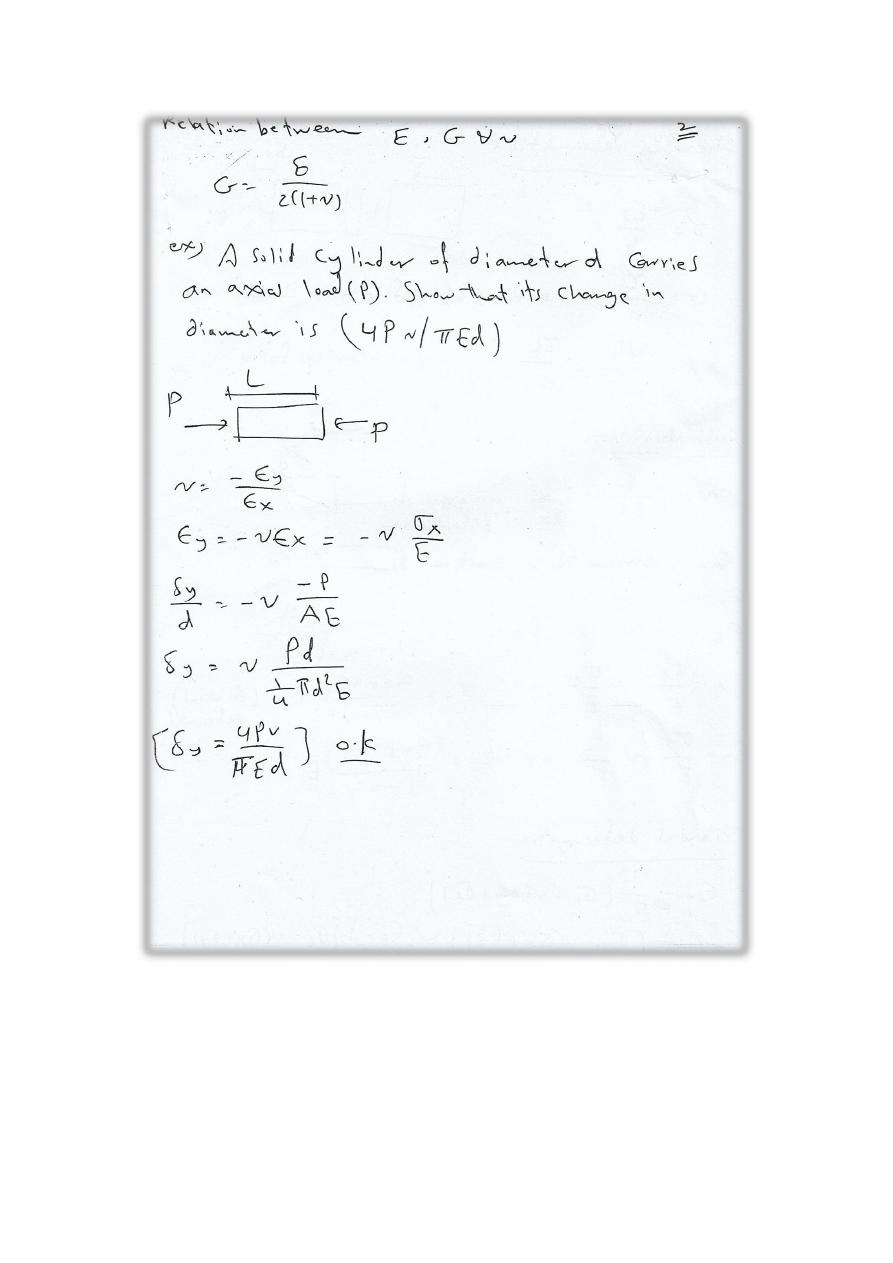 Relation between E, G & ν
2
G = E / 2(1+ν)
ex) A solid cylinder of diameter d carries
an axial load (P). Show that its change in
diameter is (4Pν/πEd)
L
P → ← P
ν = -ϵy / ϵx
ϵy = -νϵx = -ν σx / E
δy / d = -ν -P / AE
δy = ν Pd / ¼πd²E
[δy = 4Pν / πEd] o.k